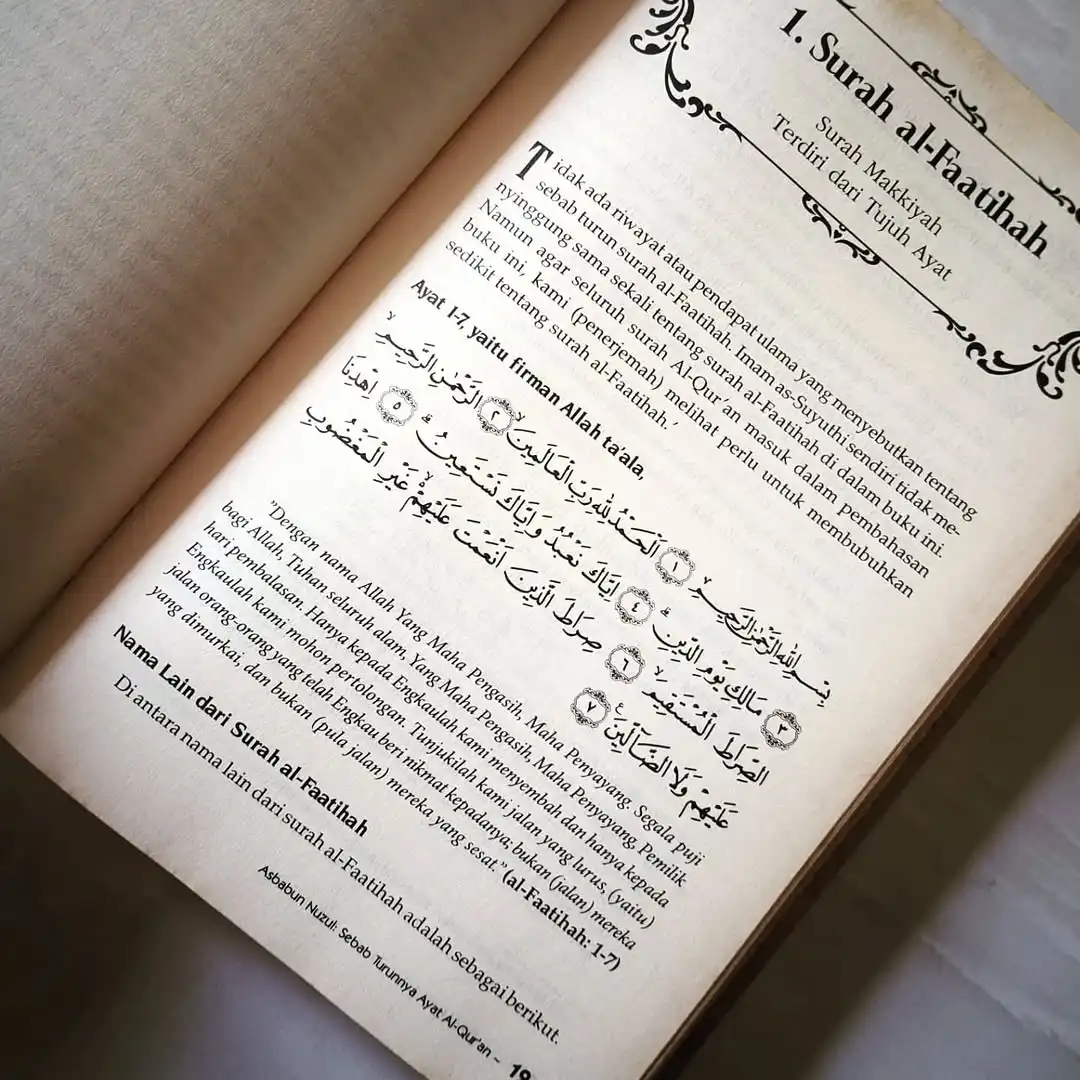 1. Surah al-Faatihah
Surah Makkiyah
Terdiri dari Tujuh Ayat
Tidak ada riwayat atau pendapat ulama yang menyebutkan tentang
sebab turun surah al-Faatihah. Imam as-Suyuthi sendiri tidak me-
nyinggung sama sekali tentang surah al-Faatihah di dalam buku ini.
Namun agar seluruh surah Al-Qur'an masuk dalam pembahasan
buku ini, kami (penerjemah) melihat perlu untuk membubuhkan
sedikit tentang surah al-Faatihah.'
Ayat 1-7, yaitu firman Allah ta'ala,
بِسْمِ اللّٰهِ الرَّحْمٰنِ الرَّحِيْمِ ١ اَلْحَمْدُ لِلّٰهِ رَبِّ الْعَالَمِيْنَ ٢ الرَّحْمٰنِ الرَّحِيْمِ
٣ مَالِكِ يَوْمِ الدِّيْنِ ٤ اِيَّاكَ نَعْبُدُ وَاِيَّاكَ نَسْتَعِيْنُ ٥ اِهْدِنَا
الصِّرَاطَ الْمُسْتَقِيْمَ ٦ صِرَاطَ الَّذِيْنَ اَنْعَمْتَ عَلَيْهِمْ غَيْرِ الْمَغْضُوْبِ
عَلَيْهِمْ وَلَا الضَّآلِّيْنَ ٧
"Dengan nama Allah Yang Maha Pengasih, Maha Penyayang. Segala puji
bagi Allah, Tuhan seluruh alam, Yang Maha Pengasih, Maha Penyayang, Pemilik
hari pembalasan. Hanya kepada Engkaulah kami menyembah dan hanya kepada
Engkaulah kami mohon pertolongan. Tunjukilah kami jalan yang lurus, (yaitu)
jalan orang-orang yang telah Engkau beri nikmat kepadanya; bukan (jalan) mereka
yang dimurkai, dan bukan (pula jalan) mereka yang sesat." (al-Faatihah: 1-7)
Nama Lain dari Surah al-Faatihah
Di antara nama lain dari surah al-Faatihah adalah sebagai berikut.
Asbabun Nuzul: Sebab Turunnya Ayat Al-Qur'an ~ 19